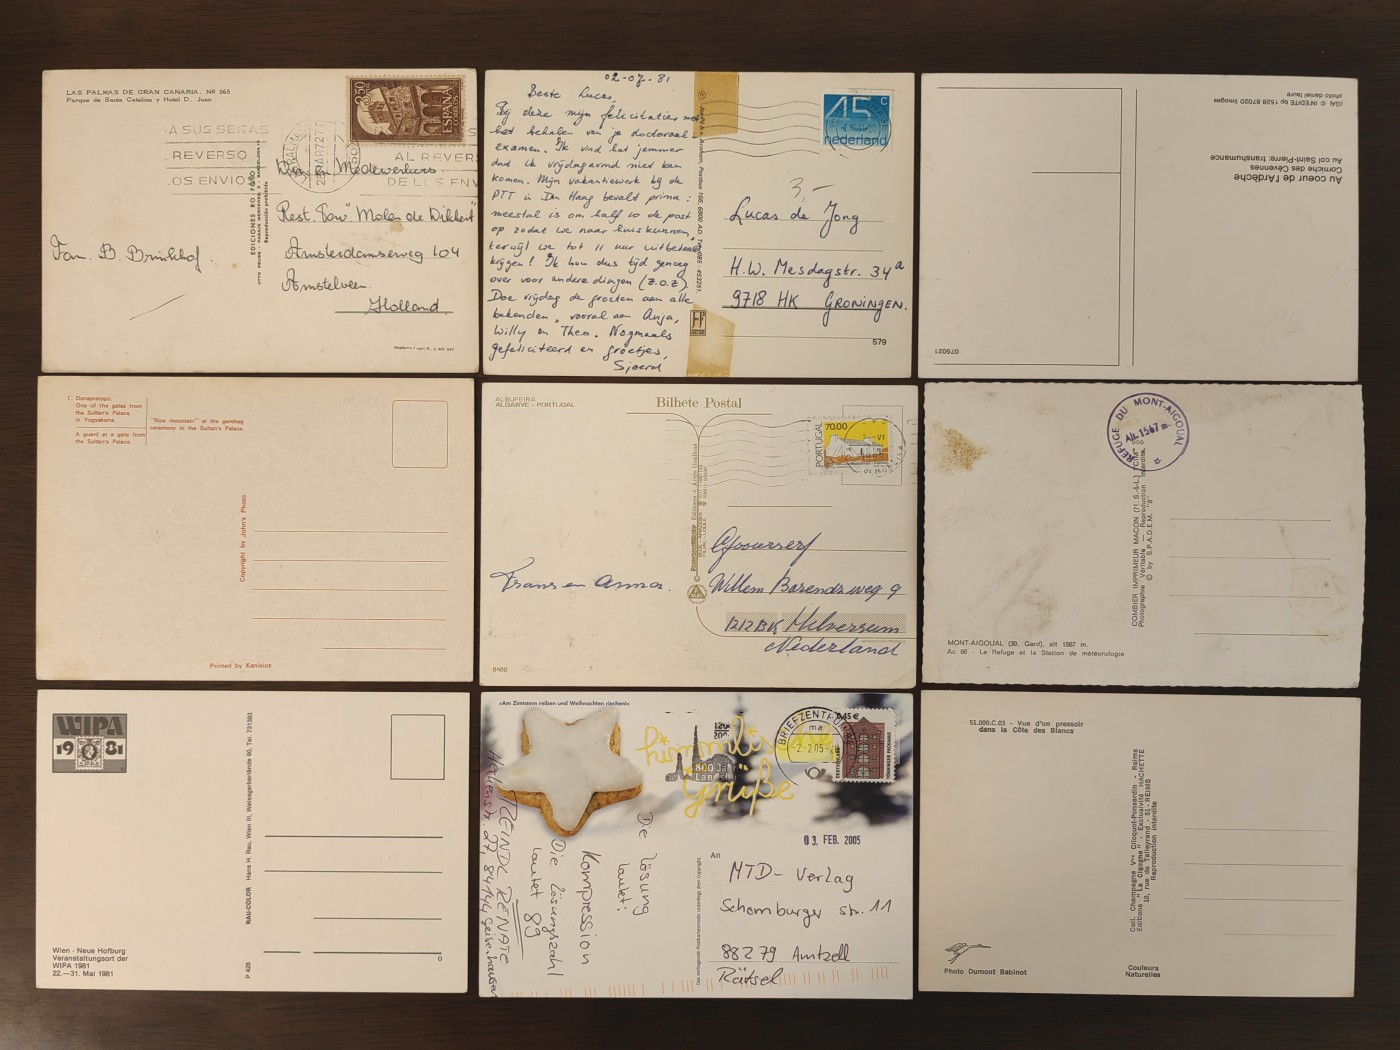 LAS PALMAS DE GRAN CANARIA. Nº 965
Parque de Santa Catalina y Hotel D. Juan
A SUS SEÑAS
REVERSO
OS ENVIO
AL REVERS
DE LOS ENV
2,50
PTAS
ESPAÑA
CORREOS
EDICIONES RO-FORO
Reproducción prohibida
Medewerkers.
Rest. "Molen de Dikkert"
Amsterdamseweg 104
Amstelveen.
Holland.
Fam. B. Brinkhof.
02-07-81
Beste Lucas,
Bij deze mijn felicitaties met
het behalen van je doctoraal
examen. Ik vind het jammer
dat ik vrijdagavond niet kan
komen. Mijn vakantiewerk bij de
PTT in Den Haag bevalt prima:
meestal is om half 10 de post
op zodat we naar huis kunnen,
terwijl we tot 11 uur uitbetaald
krijgen! Ik hou dus tijd genoeg
over voor andere dingen (z.o.z).
Doe vrijdag de groeten aan alle
bekenden, vooral aan Anja,
Willy en Theo. Nogmaals
gefeliciteerd en groetjes,
Sjoerd
45 c
nederland
3,-
Lucas de Jong
H.W. Mesdagstr. 34a
9718 HK GRONINGEN.
579
Au coeur de l'Ardèche
Corniche des Cévennes
Au col Saint-Pierre: transhumance
(GA) © INÉDITE bp 1528 87020 limoges
photo daniel faure
075021
1. Danapratopo.
One of the gates from
the Sultan's Palace
in Yogyakarta.
A guard at a gate from
the Sultan's Palace.
"Rice mountain" at the garebeg
ceremony in the Sultan's Palace.
Copyright by John's Photo.
Printed by Kanisius
ALBUFEIRA
ALGARVE - PORTUGAL
Bilhete Postal
PORTUGAL
70.00
Frans en Anna.
Willem Barendszweg 9
1212 BK Hilversum
Nederland
6460
REFUGE DU MONT-AIGOUAL
Alt. 1567 m.
COMBIER IMPRIMEUR MACON (71. S.-&-L.)
Photographie Véritable - Reproduction Interdite.
© by S.P.A.D.E.M.
MONT-AIGOUAL (30. Gard), alt 1567 m.
Ac 66 - Le Refuge et la Station de météorologie
WIPA
1981
Wien - Neue Hofburg
Veranstaltungsort der
WIPA 1981
22.—31. Mai 1981
P 428 RAU-COLOR Hans H. Rau, Wien III, Weissgerberlände 60, Tel. 731383
»Am Zimtstern reiben und Weihnachten riechen!«
himmlische
Grüße
800 Jahre
BRIEFZENTRUM
ma
-2.2.05-
0,45 €
DEUTSCHLAND
TÖNNINGER PACKHAUS
03. FEB. 2005
ZEINDL RENATE
84144 Geisenhausen
Die Lösung
lautet:
Kompression
Die Lösungszahl
lautet 89
An
MTD-Verlag
Schomburger Str. 11
88279 Amtzell
Rätsel
51.000.C.03 - Vue d'un pressoir
dans la Côte des Blancs
Coll. Champagne Vve Clicquot-Ponsardin - Reims
Editions "La Cigogne" - Exclusivité HACHETTE
10, rue de Talleyrand - 51 - REIMS
Reproduction interdite
Photo Dumont Babinot
Couleurs
Naturelles